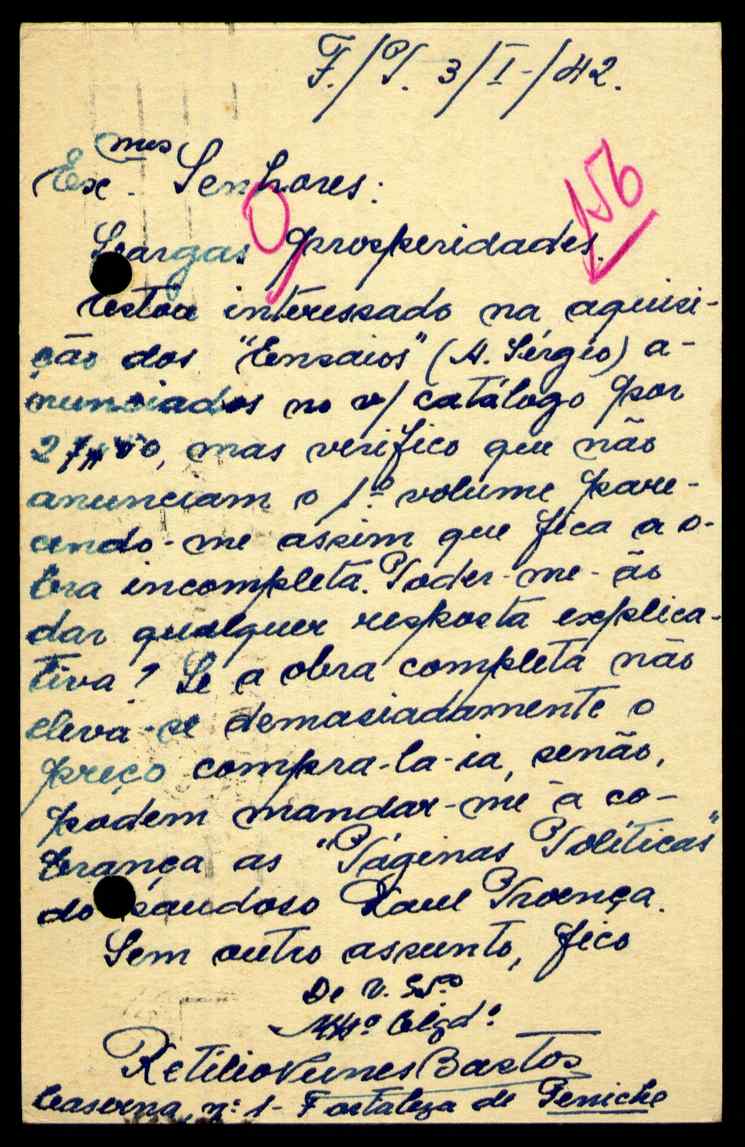 F./P. 3/I-/42.
Ex.mos Senhores:
156
Largas prosperidades.
Estou interessado na aquisi-
ção dos "Ensaios" (A. Sérgio) a-
nunciados no v/ catálogo por
mas verifico que não
anunciam o 1.º volume pare-
cendo-me assim que fica a o-
bra incompleta. Poder-me-ão
dar qualquer resposta explica-
tiva? Se a obra completa não
eleva-se demasiadamente o
preço compra-la-ia, senão,
podem mandar-me à co-
brança as "Páginas Políticas"
do saudoso Raul Proença.
Sem outro assunto, fico
De V. Ss.ª
Mt.º Obgd.º
Nunes Bastos
Caserna n.º 1- Fortaleza de Peniche